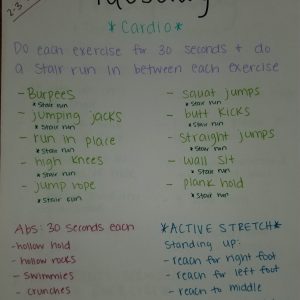 2-3
Tuesday
*Cardio*
Do each exercise for 30 seconds + do
a stair run in between each exercise
- Burpees
* stair run
- jumping jacks
* stair run
- run in place
* stair run
- high knees
* stair run
- jump rope
* stair run
- squat jumps
* stair run
- butt kicks
* stair run
- straight jumps
* stair run
- wall sit
* stair run
- plank hold
* stair run
Abs: 30 seconds each
- hollow hold
- hollow rocks
- swimmies
- crunches
*ACTIVE STRETCH*
Standing up:
- reach for right foot
- reach for left foot
- reach to middle